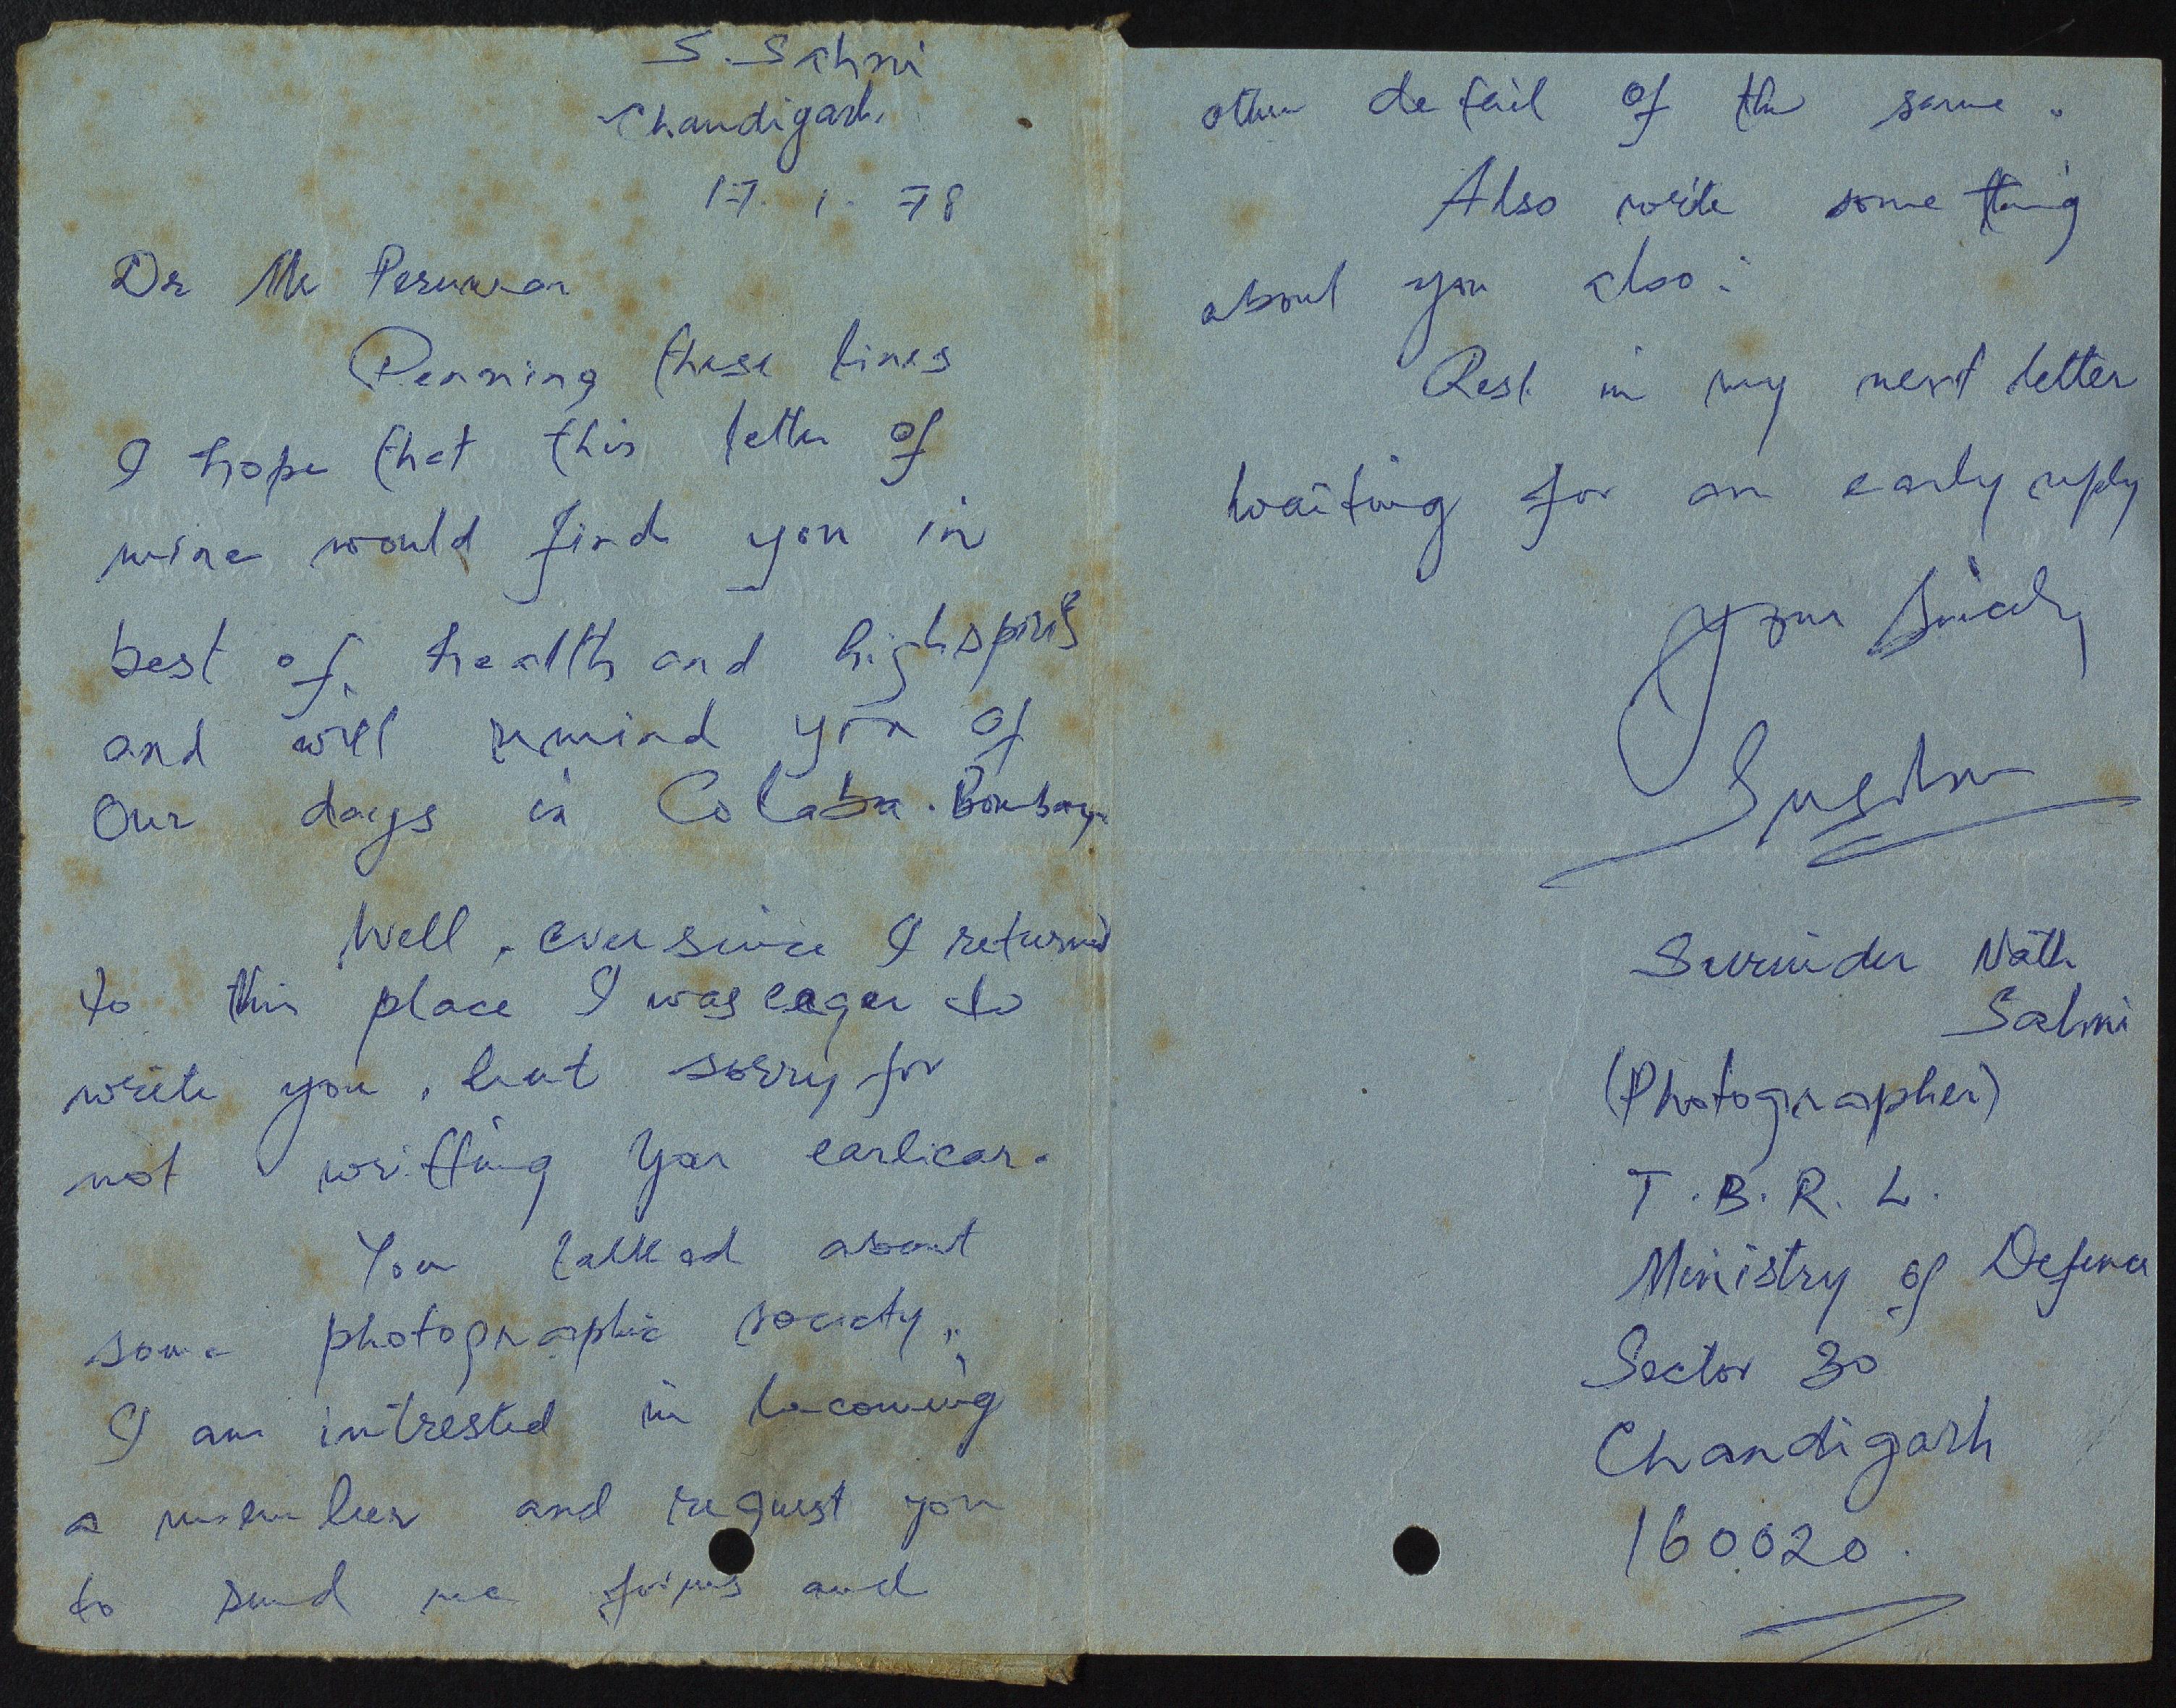 S. Sahni
Chandigarh.
17. 1. 78
Dr Mr
Penning these lines
I hope that this letter of
mine would find you in
best of health and high spirits
and will remind you of
Our days in Colaba. Bombay.
Well, ever since I returned
to this place I was eager to
write you, but sorry for
not writting you earliear.
You talked about
some photographic society.,
I am intrested in becoming
a member and request you
to send me forms and
other detail of the same.
Also write some thing
about you also.
Rest in my next letter
Waiting for an early reply
Your Sincerely
Surinder Nath
Sahni
(Photographer)
T. B. R. L.
Ministry of Defence
Sector 30
Chandigarh
160020.